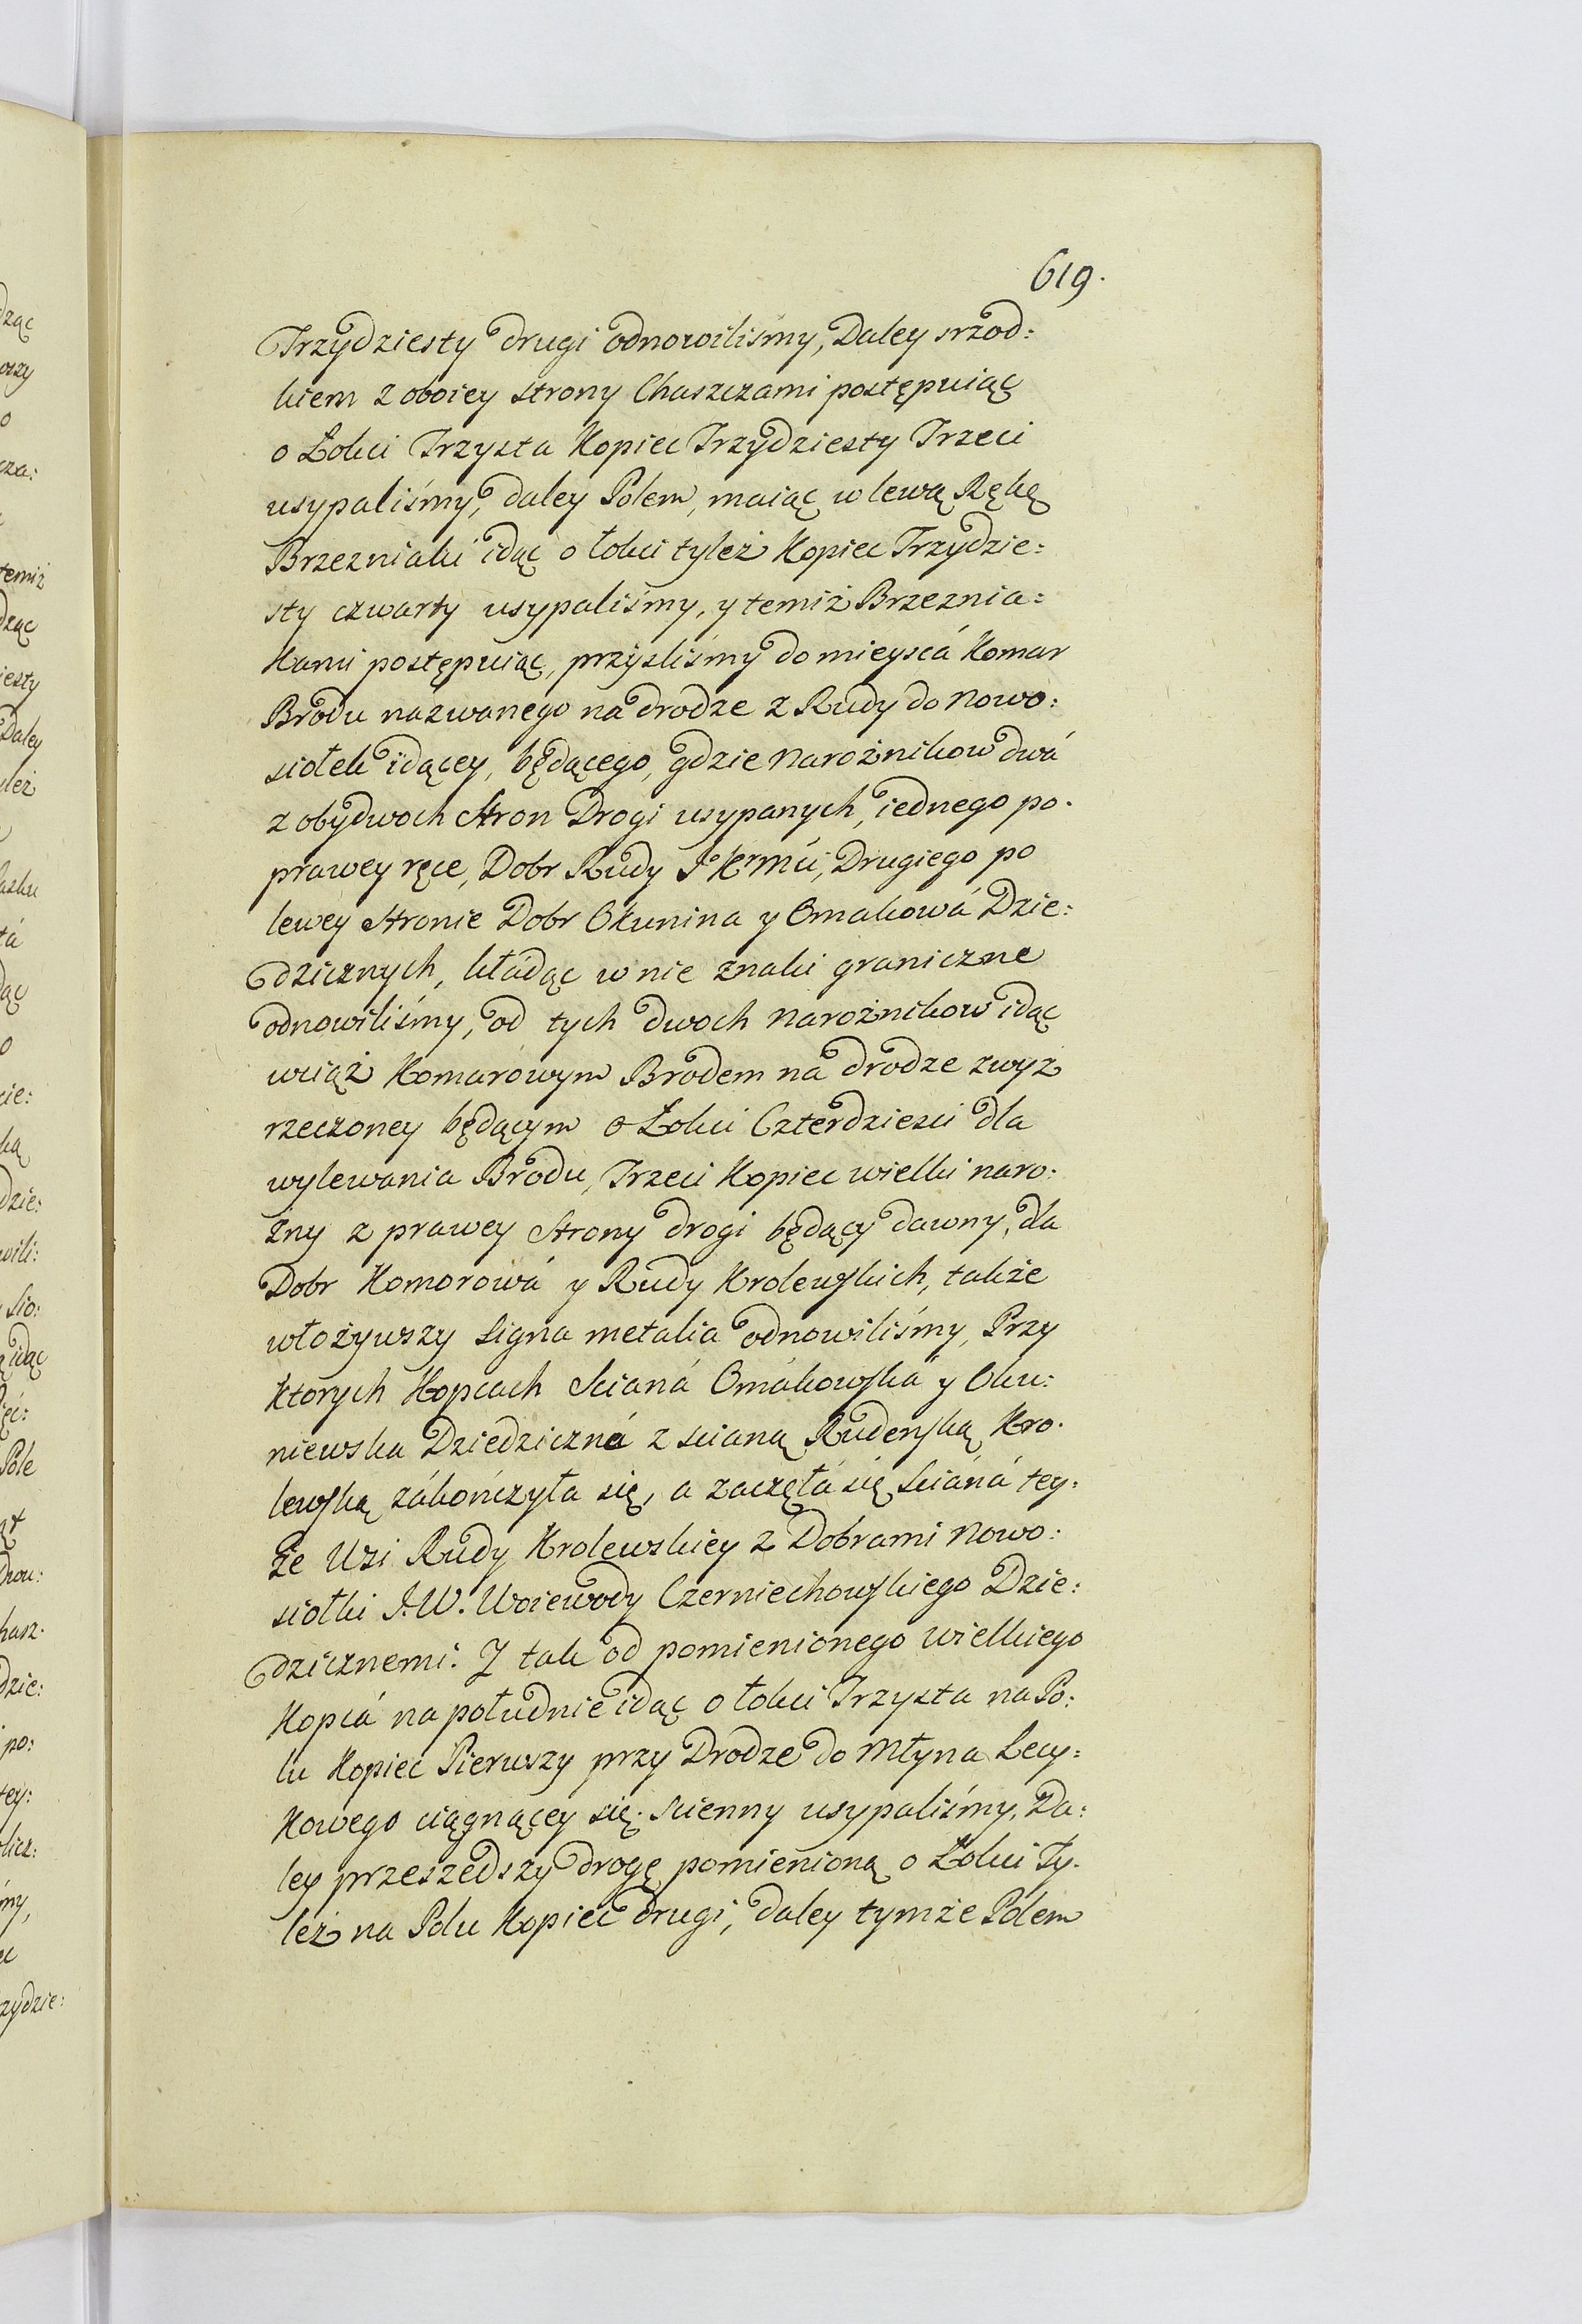 619.
Trzydziesty drugi odnowiliśmy, Daley srzod:
kiem z oboiey strony Chaszczami postępuiąc
o Łokci Trzysta Kopiec Trzydziesty Trzeci
usypaliśmy, daley Polem, maiąc w lewą Rękę
Brzezniaki idąc o łokci tyleż Kopiec Trzydzie:
sty czwarty usypaliśmy, y temiż Brzeznia:
kami postępuiąc, przyśliśmy do mieyscá Komar
Brodu nazwanego na drodze z Rudy do Nowo:
siołek idącey, będącego, gdzie Narożnikow dwá
z obydwoch Stron Drogi usypanych, iednego po.
prawey ręce, Dobr Rudy Drugiego po
lewey Stronie Dobr Okunina y Omakowá Dzie:
dzicznych, kładąc w nie znaki graniczne
odnowiliśmy, od tych dwoch Narożnikow idąc
wciąż Komarowym Brodem na drodze zwyż
rzeczoney będącym o Łokci Czterdziesci dla
wylewania Brodu, Trzeci Kopiec wielki naro:
żny z prawey Strony drogi będący dawny, dla
Dobr Komorowá y Rudy Krolewskich, także
włożywszy Signa metalia odnowiliśmy, Przy
ktorych Kopcach Scianá Omákowska y Oku:
niewska Dziedziczná z scianą Rudenską Kro.
lewską zákończyła się, a zaczęłá się Scianá tey:
że Wsi Rudy Krolewskiey z Dobrami Nowo:
siołki J. W. Woiewody Czerniechowskiego Dzie:
dzicznemi. J tak od pomienionego wielkiego
Kopcá na południe idąc o łokci Trzysta na Po:
lu Kopiec Pierwszy przy Drodze do Młyna Lecy:
kowego ciągnącey się. Scienny usypaliśmy, Da:
ley przeszedszy drogę pomienioną o Łokci Ty.
leż na Polu Kopiec drugi, daley tymże Polem